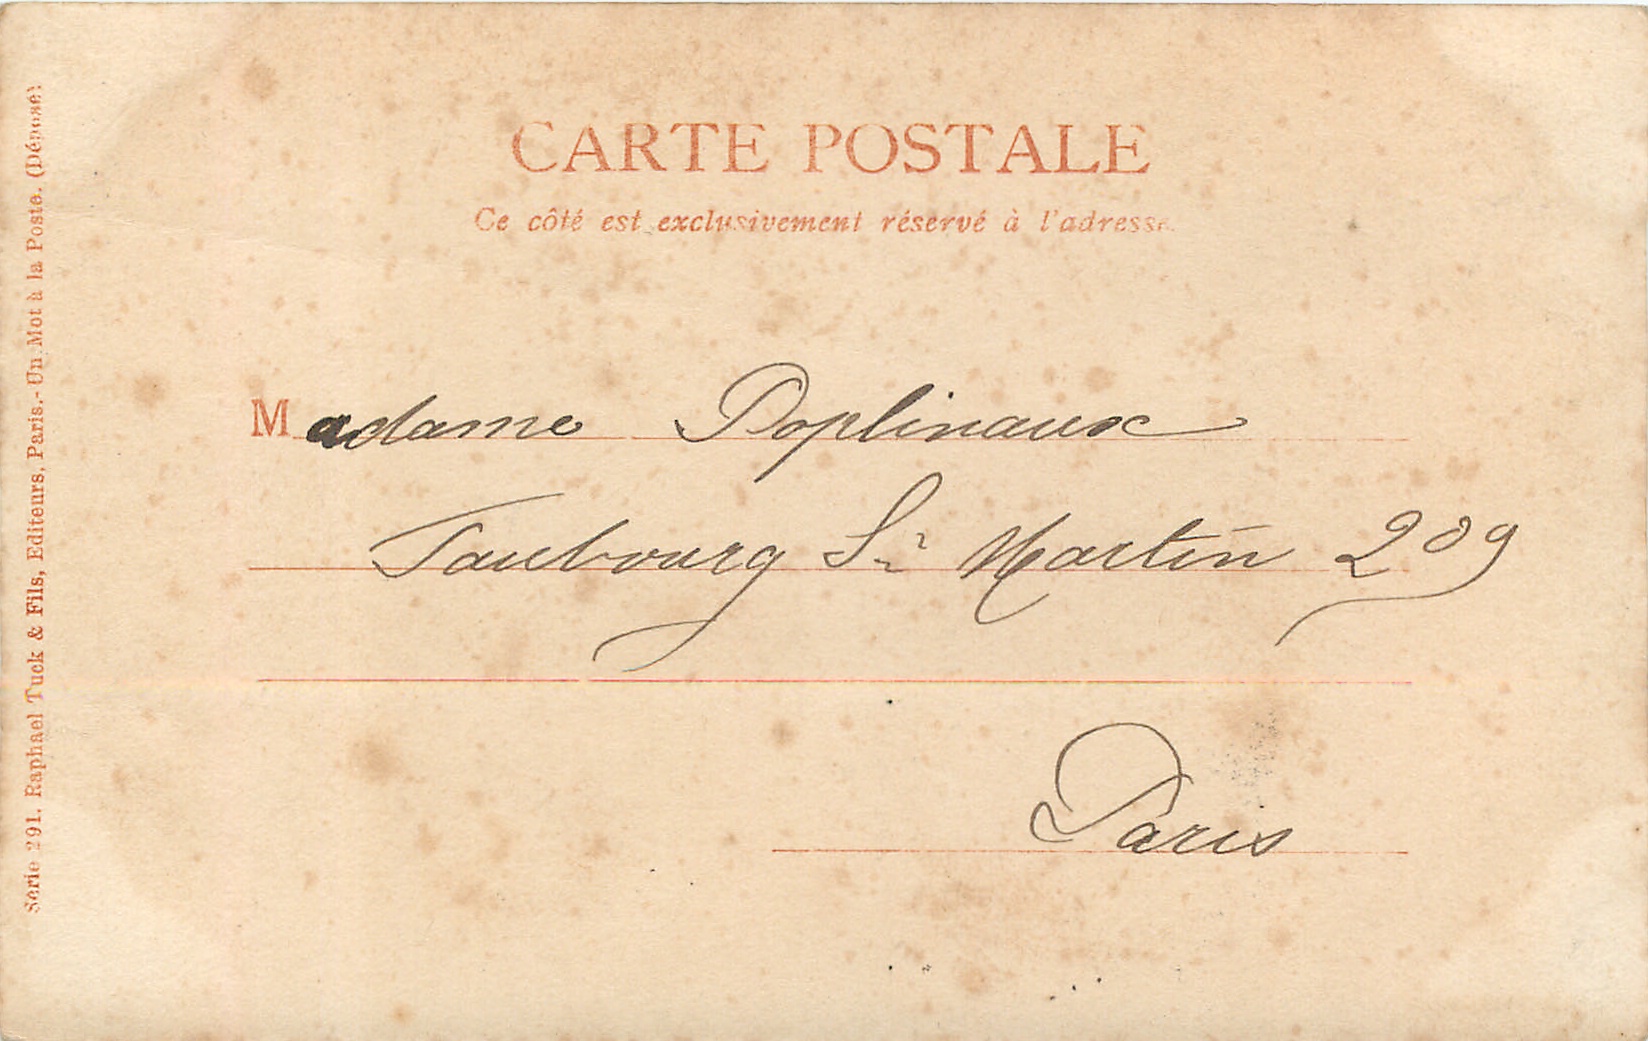 CARTE POSTALE
Ce côté est exclusivement réservé à l'adresse
Madame Poplineaux
Faubourg St Martin 209
Paris
Série 291. Raphael Tuck & Fils, Editeurs, Paris.- Un Mot à la Poste. (Déposé)